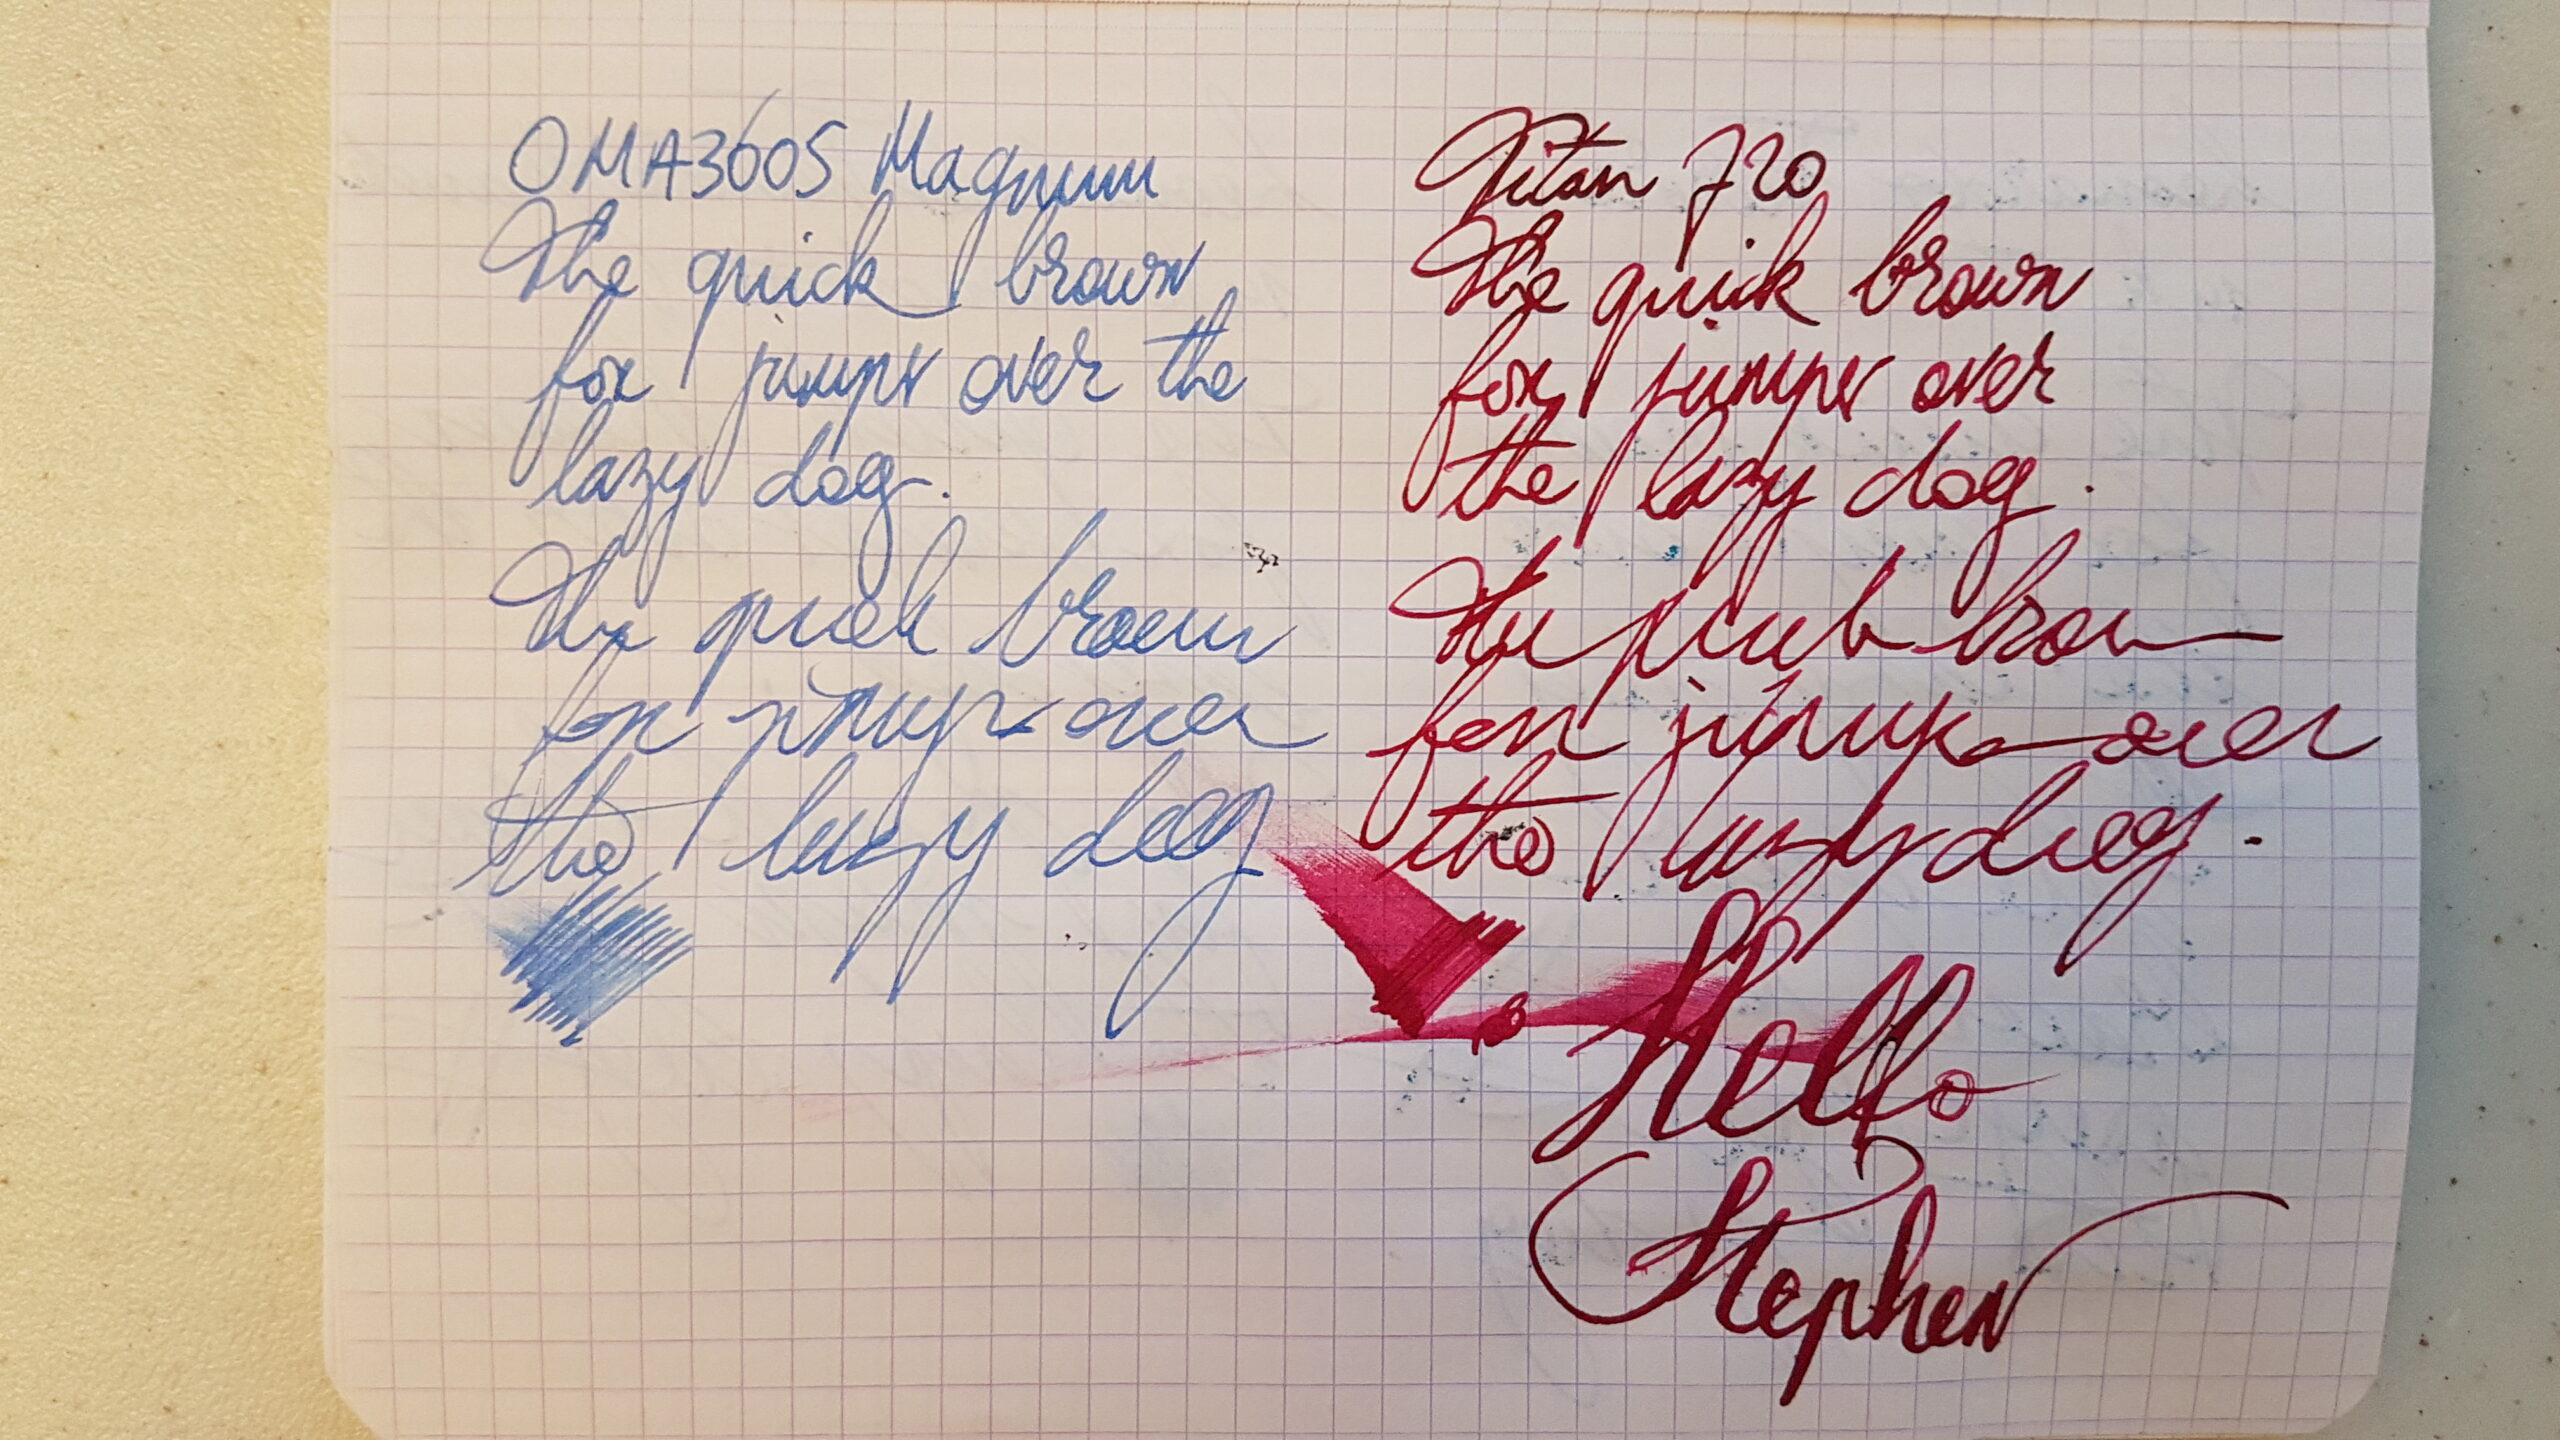 OMA3605 Magnum
The quick brown
fox jumps over the
lazy dog.
The quick brown
fox jumps over
the lazy dog
Titan 720
The quick brown
fox jumps over
the lazy dog.
The quick brown
fox jumps over
the lazy dog.
Hello
Stephen